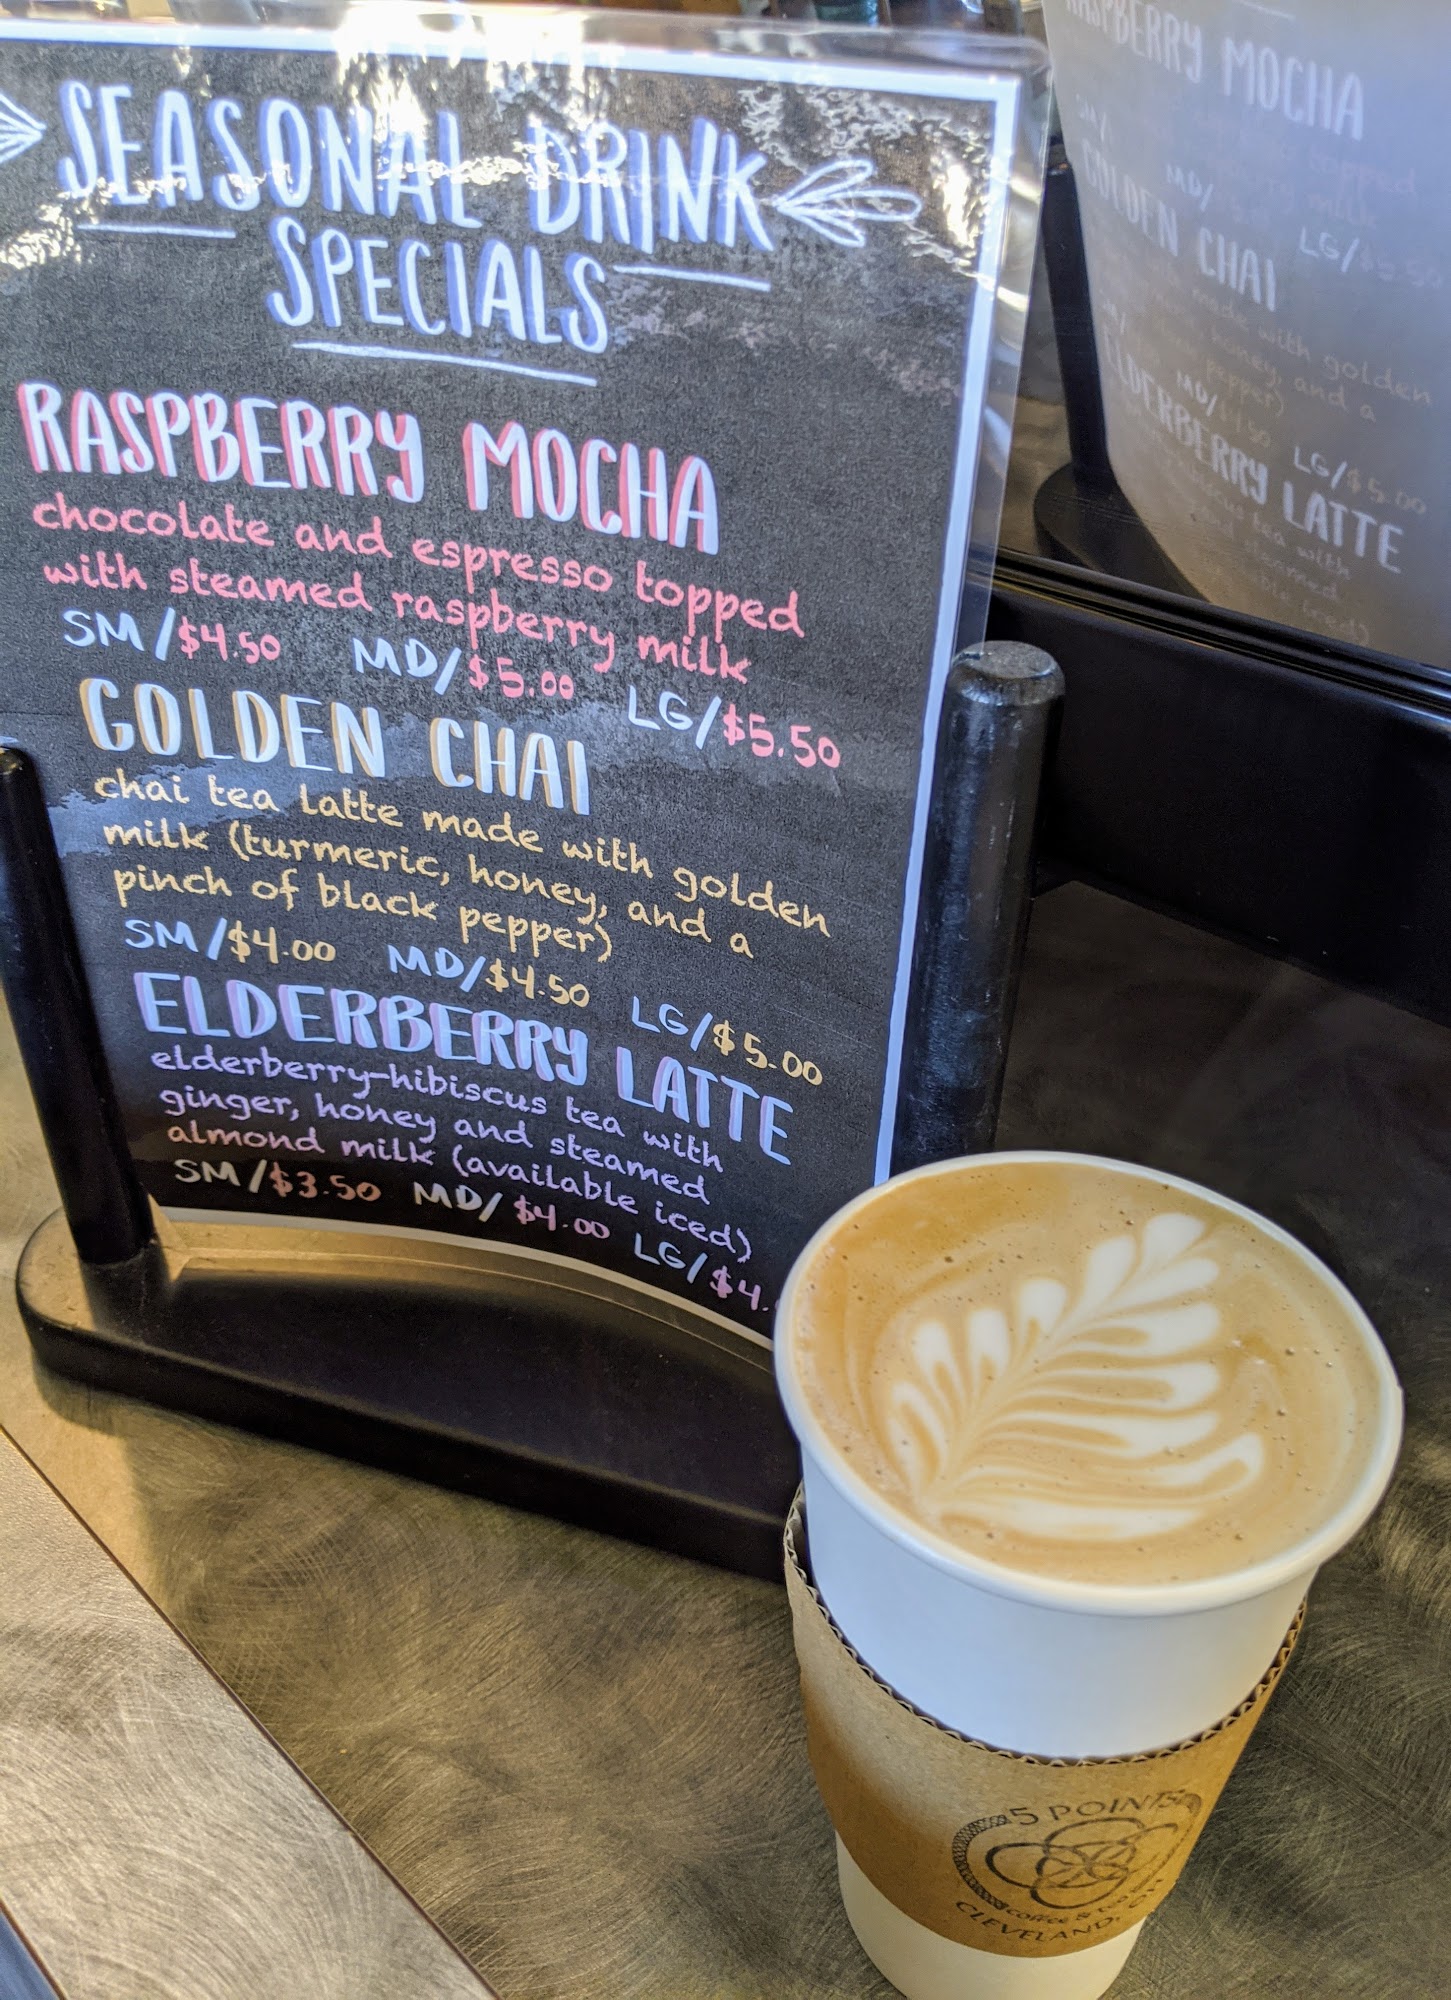 SEASONAL DRINK
SPECIALS
RASPBERRY MOCHA
chocolate and espresso topped
with steamed raspberry milk
SM/$4.50 MD/$5.00 LG/$5.50
GOLDEN CHAI
chai tea latte made with golden
milk (turmeric, honey, and a
pinch of black pepper)
SM/$4.00 MD/$4.50 LG/$5.00
ELDERBERRY LATTE
elderberry-hibiscus tea with
ginger, honey and steamed
almond milk (available iced)
SM/$3.50 MD/$4.00 LG/$4.
RASPBERRY MOCHA
MD/ LG/$5.50
GOLDEN CHAI
made with golden
honey, and a
pepper)
MD/$4.50 LG/$5.00
ELDERBERRY LATTE
tea with
5 POINTS
coffee & tea
CLEVELAND, OH